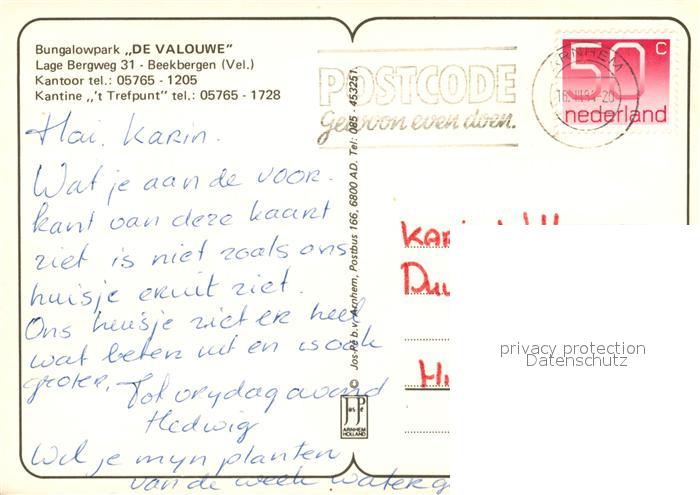 Bungalowpark „DE VALOUWE”
Lage Bergweg 31 - Beekbergen (Vel.)
Kantoor tel.: 05765 - 1205
Kantine „'t Trefpunt” tel.: 05765 - 1728
POSTCODE
Gewoon even doen.
ARNHEM
50 c
nederland
Hai, Karin.
Wat je aan de voor-
kant van deze kaart
ziet is niet zoals ons
huisje eruit ziet.
Ons huisje ziet er heel
wat beter uit en is ook
groter.
Tot vrydag avond
Hedwig
Wil je myn planten
van de week water g
© Jos-Pé b.v. Arnhem, Postbus 166, 6800 AD. Tel: 085 - 453251.
Jos Pé
ARNHEM
HOLLAND
privacy protection
Datenschutz